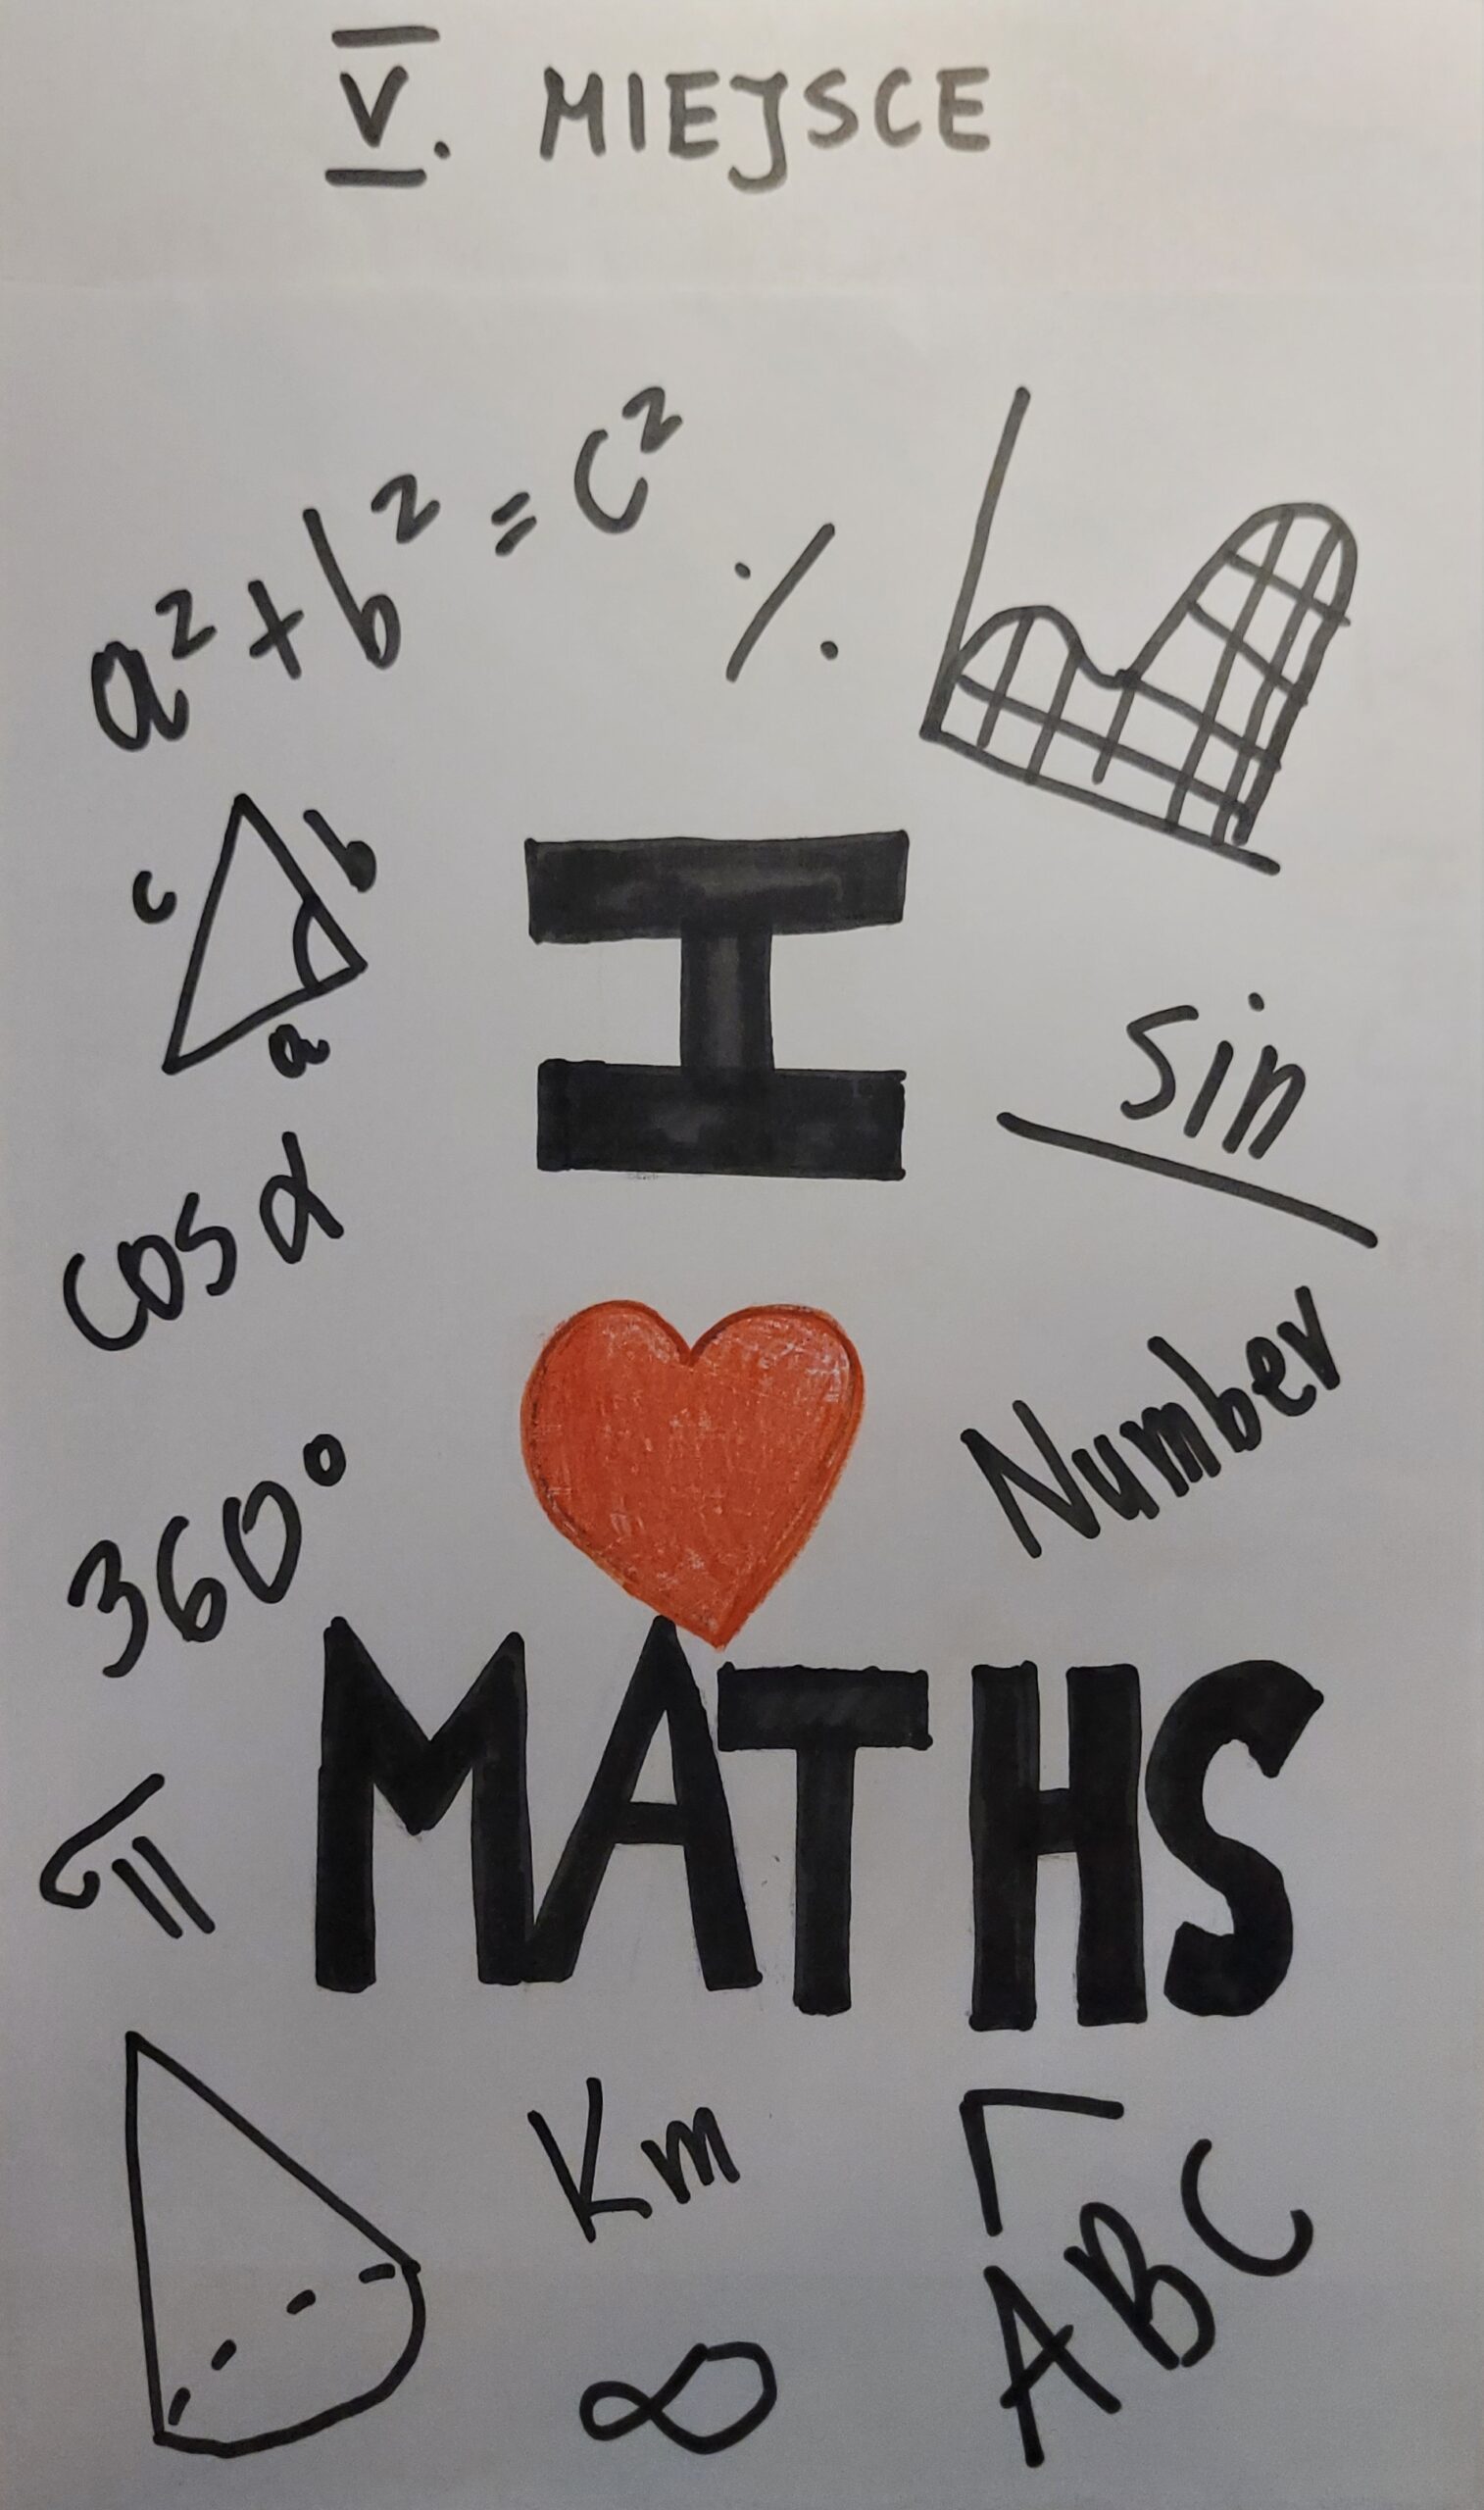 V. MIEJSCE
a²+b²=c²
%
c
b
a
I
sin
cos α
Number
360°
MATHS
π
Km
ABC
∞